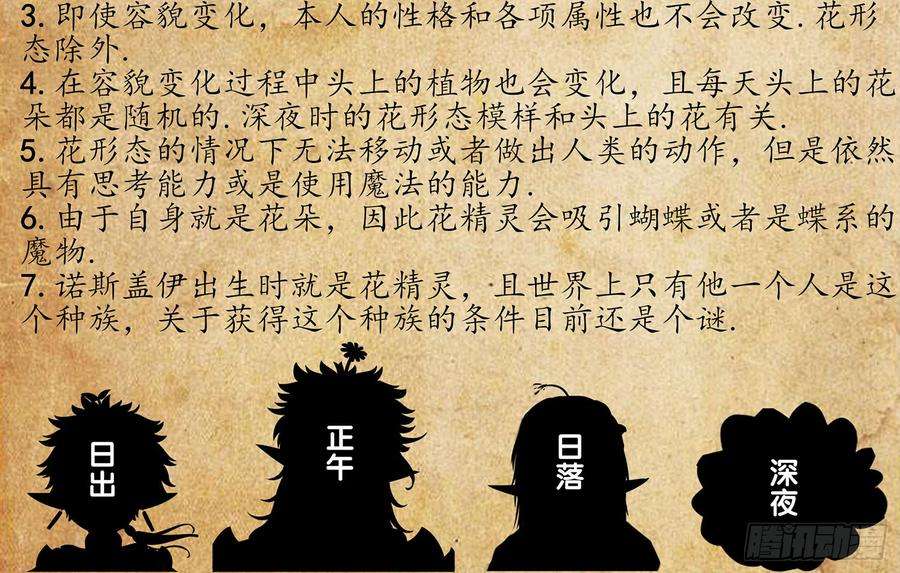 3. 即使容貌变化，本人的性格和各项属性也不会改变. 花形
态除外.
4. 在容貌变化过程中头上的植物也会变化，且每天头上的花
朵都是随机的. 深夜时的花形态模样和头上的花有关.
5. 花形态的情况下无法移动或者做出人类的动作，但是依然
具有思考能力或是使用魔法的能力.
6. 由于自身就是花朵，因此花精灵会吸引蝴蝶或者是蝶系的
魔物.
7. 诺斯盖伊出生时就是花精灵，且世界上只有他一个人是这
个种族，关于获得这个种族的条件目前还是个谜.
日出
正午
日落
深夜
腾讯动漫